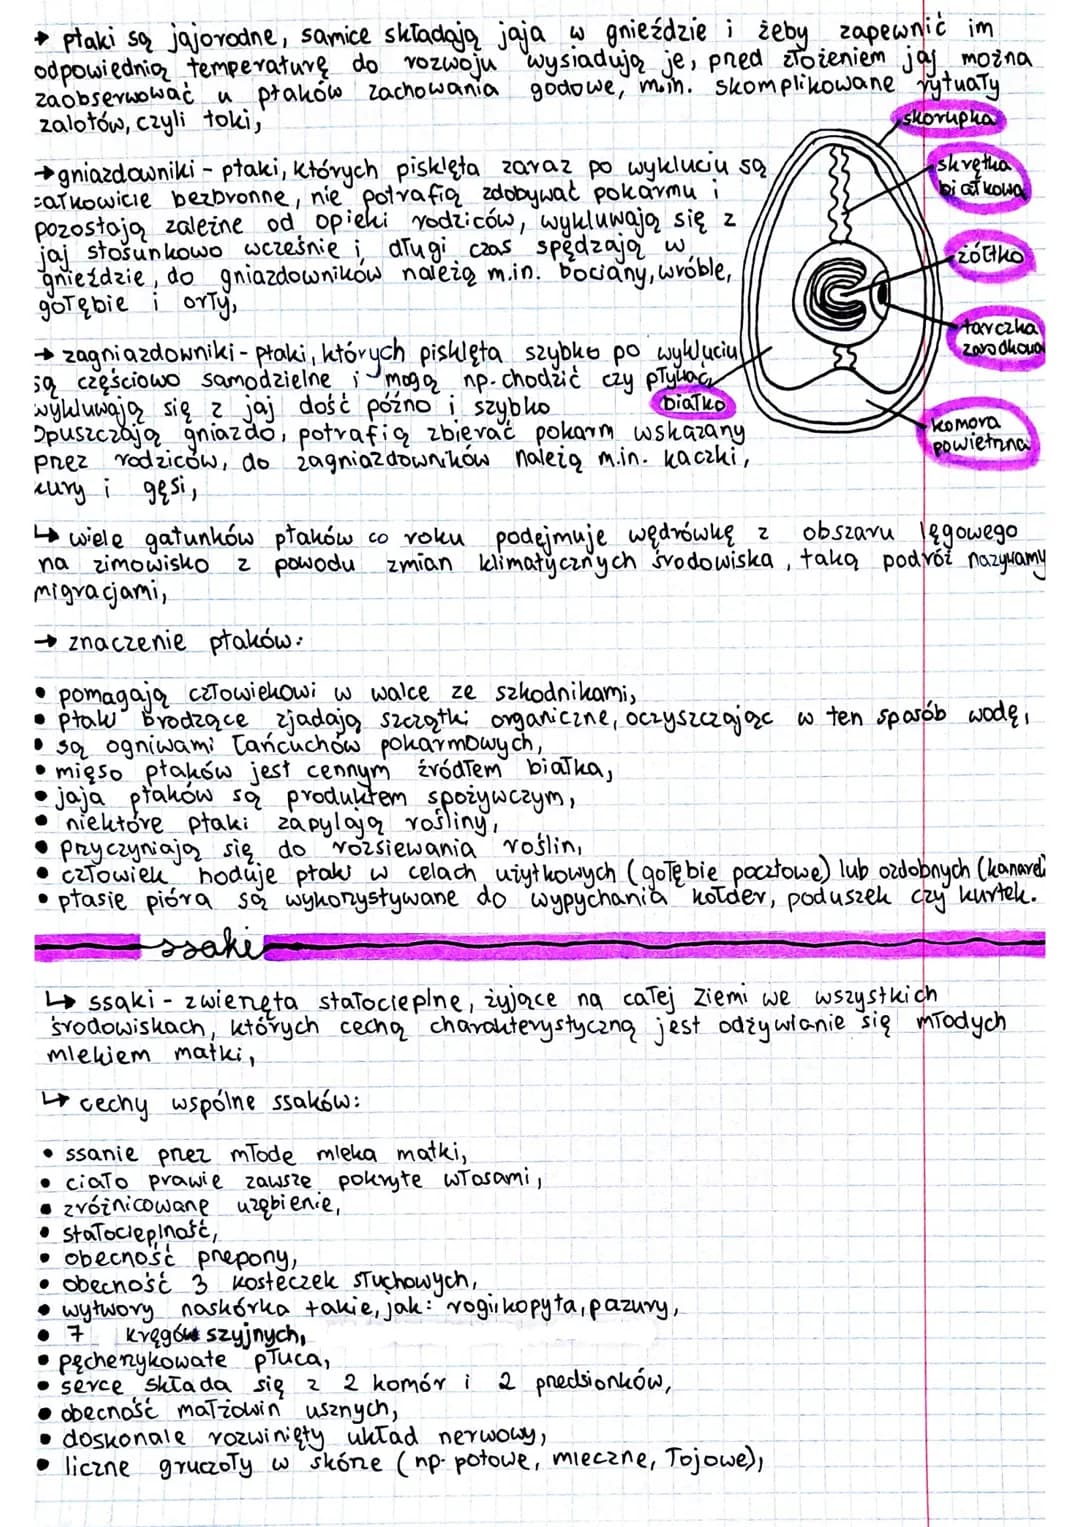 → ptaki są jajorodne, samice składają jaja w gnieździe i żeby zapewnić im
odpowiednią temperaturę do rozwoju wysiadują je, przed złożeniem jaj można
zaobserwować u ptaków zachowania godowe, m.in. skomplikowane rytuały
zalotów, czyli toki,
skorupka
skrętka
białkowa
żółtko
tarczka
zarodkowa
białko
komora
powietrzna
→ gniazdowniki - ptaki, których pisklęta zaraz po wykluciu są
całkowicie bezbronne, nie potrafią zdobywać pokarmu i
pozostają zależne od opieki rodziców, wykluwają się z
jaj stosunkowo wcześnie i długi czas spędzają w
gnieździe, do gniazdowników należą m.in. bociany, wróble,
gołębie i orły,
→ zagniazdowniki - ptaki, których pisklęta szybko po wykluciu
są częściowo samodzielne i mogą np. chodzić czy pływać,
wykluwają się z jaj dość późno i szybko
opuszczają gniazdo, potrafią zbierać pokarm wskazany
przez rodziców, do zagniazdowników należą m.in. kaczki,
kury i gęsi,
↳ wiele gatunków ptaków co roku podejmuje wędrówkę z obszaru lęgowego
na zimowisko z powodu zmian klimatycznych środowiska, taką podróż nazywamy
migracjami,
→ znaczenie ptaków:
• pomagają człowiekowi w walce ze szkodnikami,
• ptaki brodzące zjadają szczątki organiczne, oczyszczając w ten sposób wodę,
• są ogniwami łańcuchów pokarmowych,
• mięso ptaków jest cennym źródłem białka,
• jaja ptaków są produktem spożywczym,
• niektóre ptaki zapylają rośliny,
• przyczyniają się do rozsiewania roślin,
• człowiek hoduje ptaki w celach użytkowych (gołębie pocztowe) lub ozdobnych (kanarki
• ptasie pióra są wykorzystywane do wypychania kołder, poduszek czy kurtek.
ssaki
↳ ssaki - zwierzęta stałocieplne, żyjące na całej Ziemi we wszystkich
środowiskach, których cechą charakterystyczną jest odżywianie się młodych
mlekiem matki,
↳ cechy wspólne ssaków:
• ssanie przez młode mleka matki,
• ciało prawie zawsze pokryte włosami,
• zróżnicowane uzębienie,
• stałocieplność,
• obecność przepony,
• obecność 3 kosteczek słuchowych,
• wytwory naskórka takie, jak: rogi, kopyta, pazury,
• 7 kręgów szyjnych,
• pęcherzykowate płuca,
• serce składa się z 2 komór i 2 przedsionków,
• obecność małżowin usznych,
• doskonale rozwinięty układ nerwowy,
• liczne gruczoły w skórze (np. potowe, mleczne, łojowe),